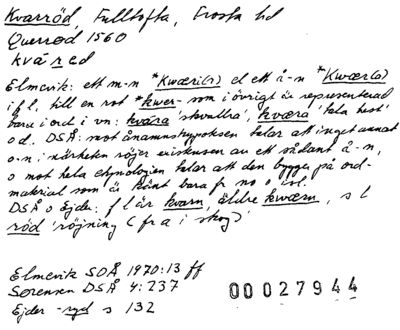 Kvarröd, Fulltofta, Frosta hd
Querröd 1560
kvá̀red
Elmevik: ett m-n *Kwæri(r) el ett å-n *Kwær(a)
i f l, till en rot *kwer- som i övrigt är representerad
bara i ord i vn: kværa 'skvallra', kværa 'tala hest'
o d. DSÅ: mot ånamnshypotesen talar att inget annat
o-n i närheten röjer existensen av ett sådant å-n,
o mot hela etymologien talar att den bygger på ord-
material som är känt bara fr no o isl.
DSÅ o Ejder: f l är kvarn, äldre kwærn, s l
röd 'röjning (fr a i skog)'
Elmevik SOÅ 1970:13 ff
Sørensen DSÅ 4:237
Ejder -ryd s 132
00027944